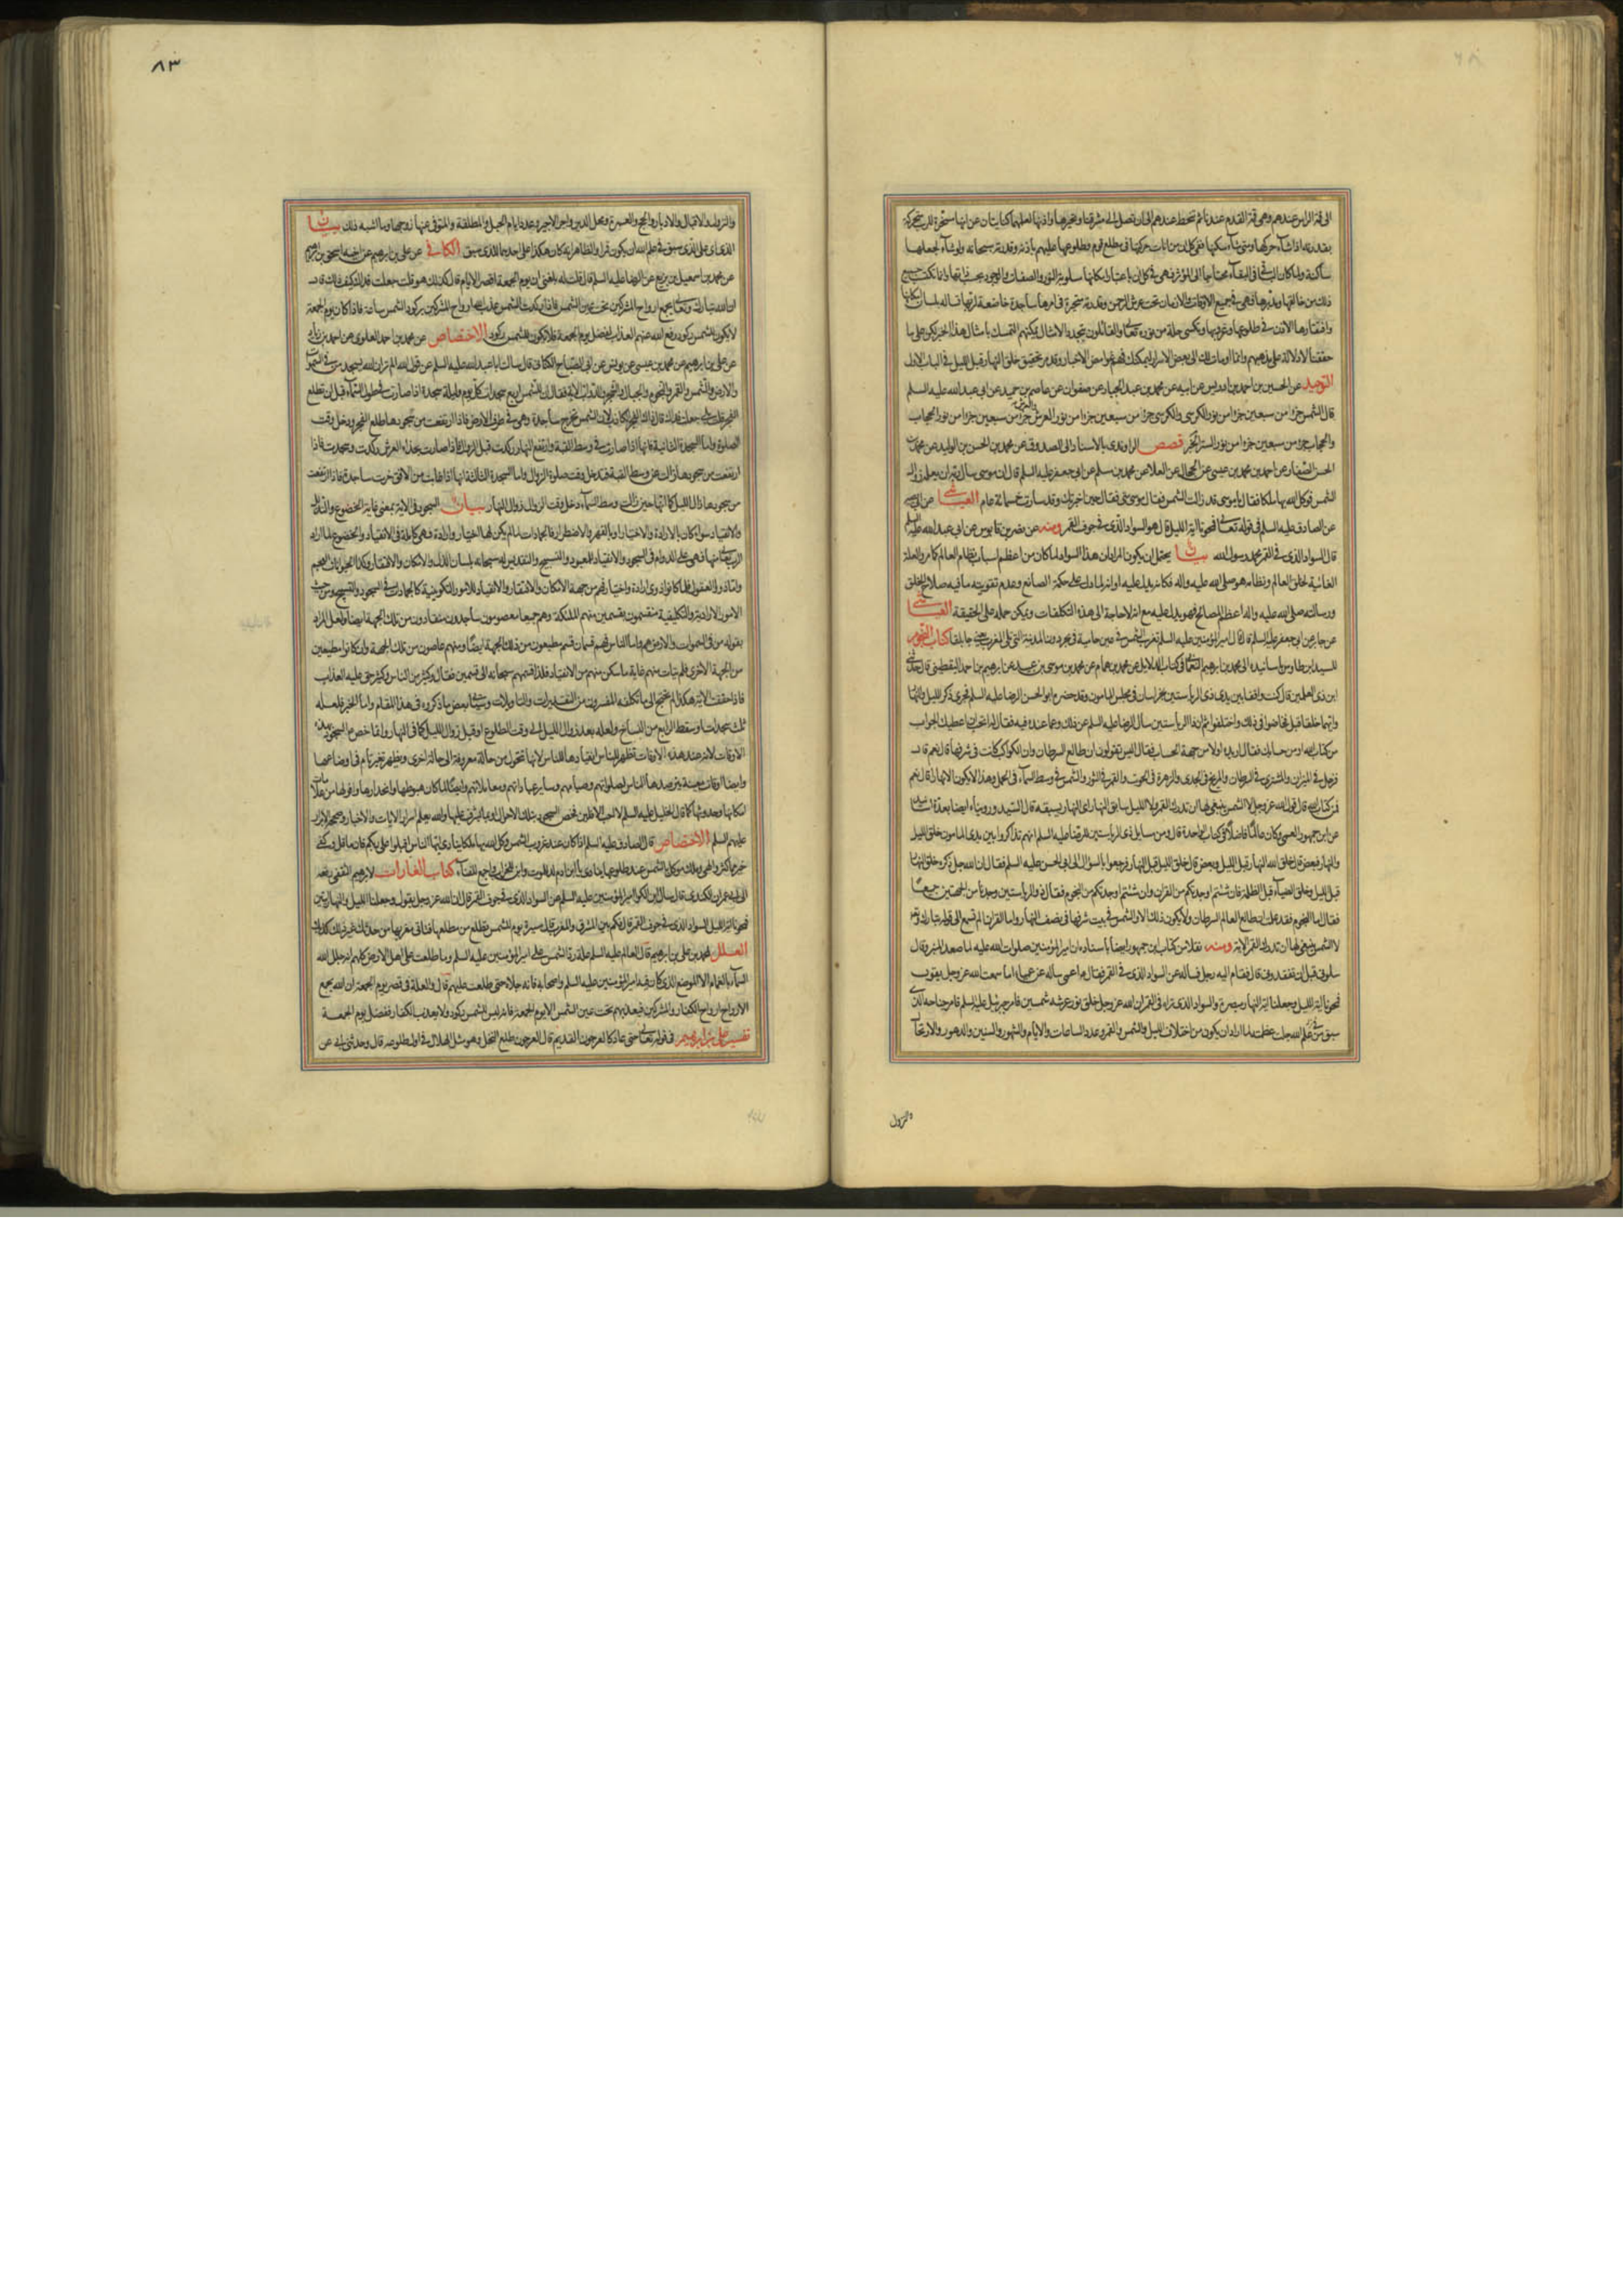 الى قمة الراس عندهم وهي قمة القدم عندنا ثم تنحط عندهم الى ان تصل الى مشرقنا
بقدرته اذا شاء حركها ومتى شاء سكنها
ساكنة ولما كان الشئ في البقاء محتاجا الى المؤثر فهي في كل ان باعتبار امكانها مسلوبة النور والصفات والوجود بحسب ذاتها
ذلك من خالقها ومدبرها فهي في جميع الاوقات والازمان تحت عرش الرحمن وقدرته متحيرة في امرها ساجدة خاضعة لربها تساله بلسان امكانها
وافتقارها الاذن في طلوعها وغروبها وتكسى حلة من نوره تعالى والقائلون بتجدد الامثال يمكنهم التمسك بامثال هذا الخبر
حققنا الا دلالة على مذهبهم
التوحيد عن الحسين بن احمد بن ادريس عن ابيه عن محمد بن عبد الجبار عن صفوان عن عاصم بن حميد عن ابي عبد الله عليه السلم
قال الشمس جزء من سبعين جزءا من نور الكرسي والكرسي جزء من سبعين جزءا من نور العرش والعرش جزء من سبعين جزءا من نور الحجاب
والحجاب جزء من سبعين جزءا من نور الستر الخبر قصص الراوندي بالاسناد الى الصدوق عن محمد بن الحسن بن الوليد عن محمد بن
الحسن الصفار عن احمد بن محمد بن عيسى عن الحجال عن العلا عن محمد بن مسلم عن ابي جعفر عليه السلم قال ان موسى سال ربه ان يعلمه زوال
الشمس فوكل الله بها ملكا فقال يا موسى قد زالت الشمس فقال موسى متى فقال حين اخبرتك وقد سارت خمسمائة عام العياشي
عن الصادق عليه السلم في قوله تعالى فمحونا اية الليل قال هو السواد الذي في جوف القمر ومنه عن نصر بن قابوس عن ابي عبد الله عليه السلم
قال السواد الذي في القمر محمد رسول الله بيان يحتمل ان يكون المراد ان هذا السواد لما كان من اعظم اسباب نظام العالم كما مر والعلة
الغائية لخلق العالم ونظامه هو صلى الله عليه واله فكانه يدل عليه او انه لما دل على حكمة الصانع وعدم تفويته ما فيه صلاح الخلق
ورسالته صلى الله عليه واله اعظم المصالح فهو يدل عليه مع انه لا حاجة الى هذه التكلفات ويمكن حمله على الحقيقة العياشي
عن جابر عن ابي جعفر عليه السلم قال قال امير المؤمنين عليه السلم تغرب الشمس في عين حامية في بحر دون المدينة التي تلي المغرب يعني جابلقا كتاب النجوم
للسيد ابن طاوس باسانيده الى محمد بن ابراهيم النعماني في كتاب الدلائل عن محمد بن همام عن محمد بن موسى بن عبيد عن ابراهيم بن احمد اليقطيني قال حدثني
ابن ذي العلمين قال كنت واقفا بين يدي ذي الرياستين بخراسان في مجلس المامون وقد حضره ابو الحسن الرضا عليه السلم فجرى ذكر الليل والنهار
وايهما خلق قبل فخاضوا في ذلك واختلفوا ثم ان ذا الرياستين سال الرضا عليه السلم عن ذلك وعما عنده فيه فقال له اتحب ان اعطيك الجواب
من كتاب الله او من حسابك فقال اريده اولا من جهة الحساب فقال اليس تقولون ان طالع السرطان وان الكواكب كانت في شرفها قال نعم قال
فزحل في الميزان والمشتري في السرطان والمريخ في الجدي والزهرة في الحوت والقمر في الثور والشمس في وسط السماء في الحمل وهذا لا يكون الا نهارا قال نعم
فمن كتاب الله قال قول الله عز وجل لا الشمس ينبغي لها ان تدرك القمر ولا الليل سابق النهار اي النهار يسبقه قال السيد ورويناه ايضا بعدة اسانيد
عن ابن جمهور العمي وكان عالما فاضلا في كتاب الواحدة قال ومن مسايل ذي الرياستين للرضا عليه السلم انهم تذاكروا بين يدي المامون خلق الليل
والنهار فبعض قال خلق الله النهار قبل الليل وبعض قال خلق الليل قبل النهار فرجعوا بالسؤال الى ابي الحسن عليه السلم فقال ان الله جل ذكره خلق النهار
قبل الليل وخلق الضياء قبل الظلمة فان شئتم اوجدتكم من القران وان شئتم اوجدتكم من النجوم فقال ذو الرياستين اوجدنا من الجهتين جميعا
فقال اما النجوم فقد علمت ان طالع العالم السرطان ولا يكون ذلك الا والشمس في بيت شرفها في نصف النهار واما القران الم تسمع الى قوله تبارك وتعالى
لا الشمس ينبغي لها ان تدرك القمر الاية ومنه نقلا من كتاب ابن جمهور ايضا باسناده ان امير المؤمنين صلوات الله عليه لما صعد المنبر وقال
سلوني قبل ان تفقدوني قال فقام اليه رجل فساله عن السواد الذي في القمر فقال عمى ساله عن عمياء اما سمعت الله عز وجل يقول
فمحونا اية الليل وجعلنا اية النهار مبصرة والسواد الذي تراه في القمر ان الله عز وجل خلق من نور عرشه شمسين فامر جبرئيل عليه السلم فامر جناحه الذي
سبق في علم الله جلت عظمته لما اراد ان يكون من اختلاف الليل والنهار والشمس والقمر وعدد الساعات والايام والشهور والسنين والدهور والارتحال
والنزول
٨٣
والنزول والاقبال والادبار والحج والعمرة ومحل الدين واجر الاجير وعدد ايام الحبل والمطلقة والمتوفى عنها زوجها وما اشبه ذلك بيان
الذي اي على الذي سبق في علم الله ان يكون قمرا والظاهر انه كان هكذا على احدهما للذي سبق الكافي عن علي بن ابراهيم عن اخيه اسحق بن ابراهيم
عن محمد بن اسمعيل بن بزيع عن الرضا عليه السلم قال قلت له بلغني ان يوم الجمعة اقصر الايام قال كذلك هو قلت جعلت فداك كيف ذاك قال
ان الله تبارك وتعالى يجمع ارواح المشركين تحت عين الشمس فاذا ركدت الشمس عذب الله ارواح المشركين بركود الشمس ساعة فاذا كان يوم الجمعة
لا يكون للشمس ركود رفع الله عنهم العذاب لفضل يوم الجمعة فلا يكون للشمس ركود الاختصاص عن محمد بن احمد العلوي عن احمد بن زياد
عن علي بن ابراهيم عن محمد بن عيسى عن يونس عن ابي الصباح الكناني قال سالت ابا عبد الله عليه السلم عن قول الله الم تر ان الله يسجد له من في السموات
والارض والشمس والقمر والنجوم والجبال والشجر والدواب الاية فقال ان للشمس اربع سجدات كل يوم وليلة سجدة اذا صارت في طول السماء قبل ان تطلع
الفجر قلت بلى جعلت فداك قال ذاك الفجر الكاذب لان الشمس تخرج ساجدة وهي في طرف الارض فاذا ارتفعت من سجودها طلع الفجر ودخل وقت
الصلوة واما السجدة الثانية فانها اذا صارت في وسط القبة وارتفع النهار ركدت قبل الزوال فاذا صارت بحذاء العرش ركدت وسجدت فاذا
ارتفعت من سجودها زالت عن وسط القبة فيدخل وقت صلوة الزوال واما السجدة الثالثة فانها اذا غابت من الافق خرت ساجدة فاذا ارتفعت
من سجودها زال الليل كما انها حين زالت وسط السماء دخل وقت الزوال زوال النهار بيان السجود في الاية بمعنى غاية الخضوع والتذلل
والانقياد سواء كان بالارادة والاختيار او بالقهر والاضطرار فالجمادات لما لم يكن لها اختيار وارادة فهي كاملة في الانقياد والخضوع لما اراد
الرب تعالى منها فهي على الدوام في السجود والانقياد للمعبود والتسبيح والتقديس له سبحانه بلسان الذل والامكان والافتقار وكذا الحيوانات العجم
واما ذوو العقول فلما كانوا ذوي ارادة واختيار فهم من جهة الامكان والافتقار والانقياد للامور التكوينية كالجمادات في السجود والتسبيح ومن حيث
الامور الارادية والتكليفية منقسمون بقسمين منهم الملئكة وهم جميعا معصومون ساجدون منقادون من تلك الجهة ايضا ولعل المراد
بقوله من في السموات والارض هم واما الناس فهم قسمان قسم مطيعون من تلك الجهة ايضا ومنهم عاصون من تلك الجهة وان كانوا مطيعين
من الجهة الاخرى فلم يتات منهم غاية ما يمكن منهم من الانقياد فلذا قسمهم سبحانه الى قسمين فقال وكثير من الناس وكثير حق عليه العذاب
فاذا حققت الاية هكذا لم تحتج الى ما تكلفه المفسرون من التقديرات والتاويلات وسياتي بعض ما ذكروه في هذا المقام واما الخبر فلعله
ثلث سجدات او سقط الرابع من النساخ ولعله بعد زوال الليل الى وقت الطلوع او قبل زوال الليل كما في النهار وانما خص السجود بهذه
الاوقات لانه عند هذه الاوقات تظهر للناس انقيادها للناس لانها تتحول من حالة معروفة الى حالة اخرى ويظهر تغير تام في اوضاعها
وايضا اوقات معينة يترصدها الناس لصلواتهم وصيامهم وساير عباداتهم ومعاملاتهم وايضا لما كان هبوطها وانحدارها وافولها من علامات
امكانها وحدوثها كما قال الخليل عليه السلم لا احب الافلين خص السجود بتلك الاحوال والله يعلم اسرار الايات والاخبار وحججه الابرار
عليهم السلم الاختصاص قال الصادق عليه السلم اذا كان عند غروب الشمس وكل الله بها ملكا ينادي ايها الناس اقبلوا على ربكم فان ما قل وكفى
خير مما كثر والهى وملك موكل بالشمس عند طلوعها ينادي يا ابن ادم لد للموت وابن للخراب واجمع للفناء كتاب الغارات لابراهيم الثقفي رفعه
الى ابي عمران الكندي قال سال ابن الكوا امير المؤمنين عليه السلم عن السواد الذي في جوف القمر قال ان الله عز وجل يقول وجعلنا الليل والنهار ايتين
فمحونا اية الليل السواد الذي في جوف القمر قال فكم بين المشرق والمغرب قال مسيرة يوم للشمس تطلع من مطلعها فتاتي مغربها من حدثك غير ذلك كذبك
العلل لمحمد بن علي بن ابراهيم قال العالم عليه السلم علة رد الشمس على امير المؤمنين عليه السلم وما طلعت على اهل الارض كلهم انه جلل الله
السماء بالغمام الا الموضع الذي كان فيه امير المؤمنين عليه السلم واصحابه فانه جلاه حتى طلعت عليهم قال والعلة في قصر يوم الجمعة ان الله يجمع
الارواح ارواح الكفار والمشركين فيعذبهم تحت عين الشمس الا يوم الجمعة فانه ليس للشمس ركود ولا يعذب الكفار لفضل يوم الجمعة
تفسير علي بن ابراهيم في قوله تعالى حتى عاد كالعرجون القديم قال العرجون طلع النخل وهو مثل الهلال في اول طلوعه قال وحدثني ابي عن